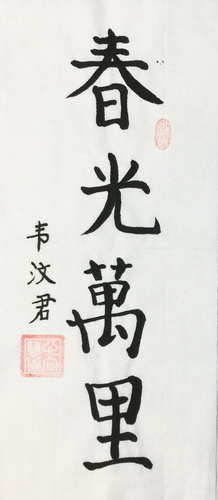 春光萬里
韦汶君